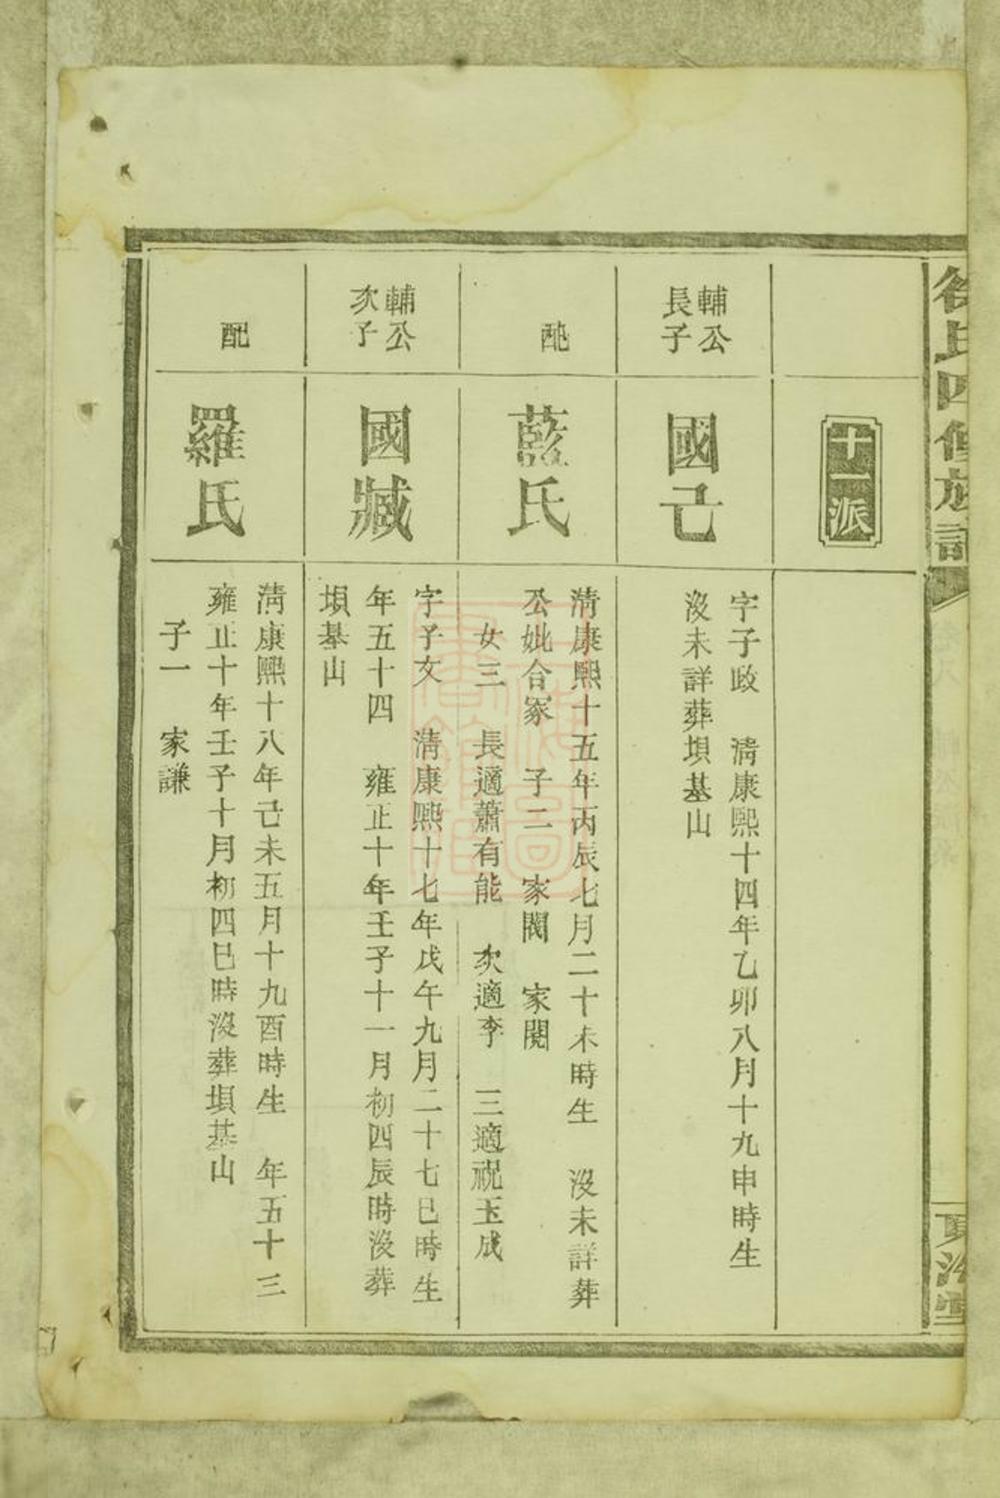 徐氏四修族譜
十一派
輔公
長子
國己
字子政　清康熙十四年乙卯八月十九申時生
沒未詳葬垻基山
配
藍氏
清康熙十五年丙辰七月二十未時生　沒未詳葬
公妣合冢　子二　家閥　家閱
女三　長適蕭有能　次適李　三適祝玉成
輔公
次子
國臧
字子文　清康熙十七年戊午九月二十七巳時生
年五十四　雍正十年壬子十一月初四辰時沒葬
垻基山
配
羅氏
清康熙十八年己未五月十九酉時生　年五十三
雍正十年壬子十月初四巳時沒葬垻基山
子一　家謙